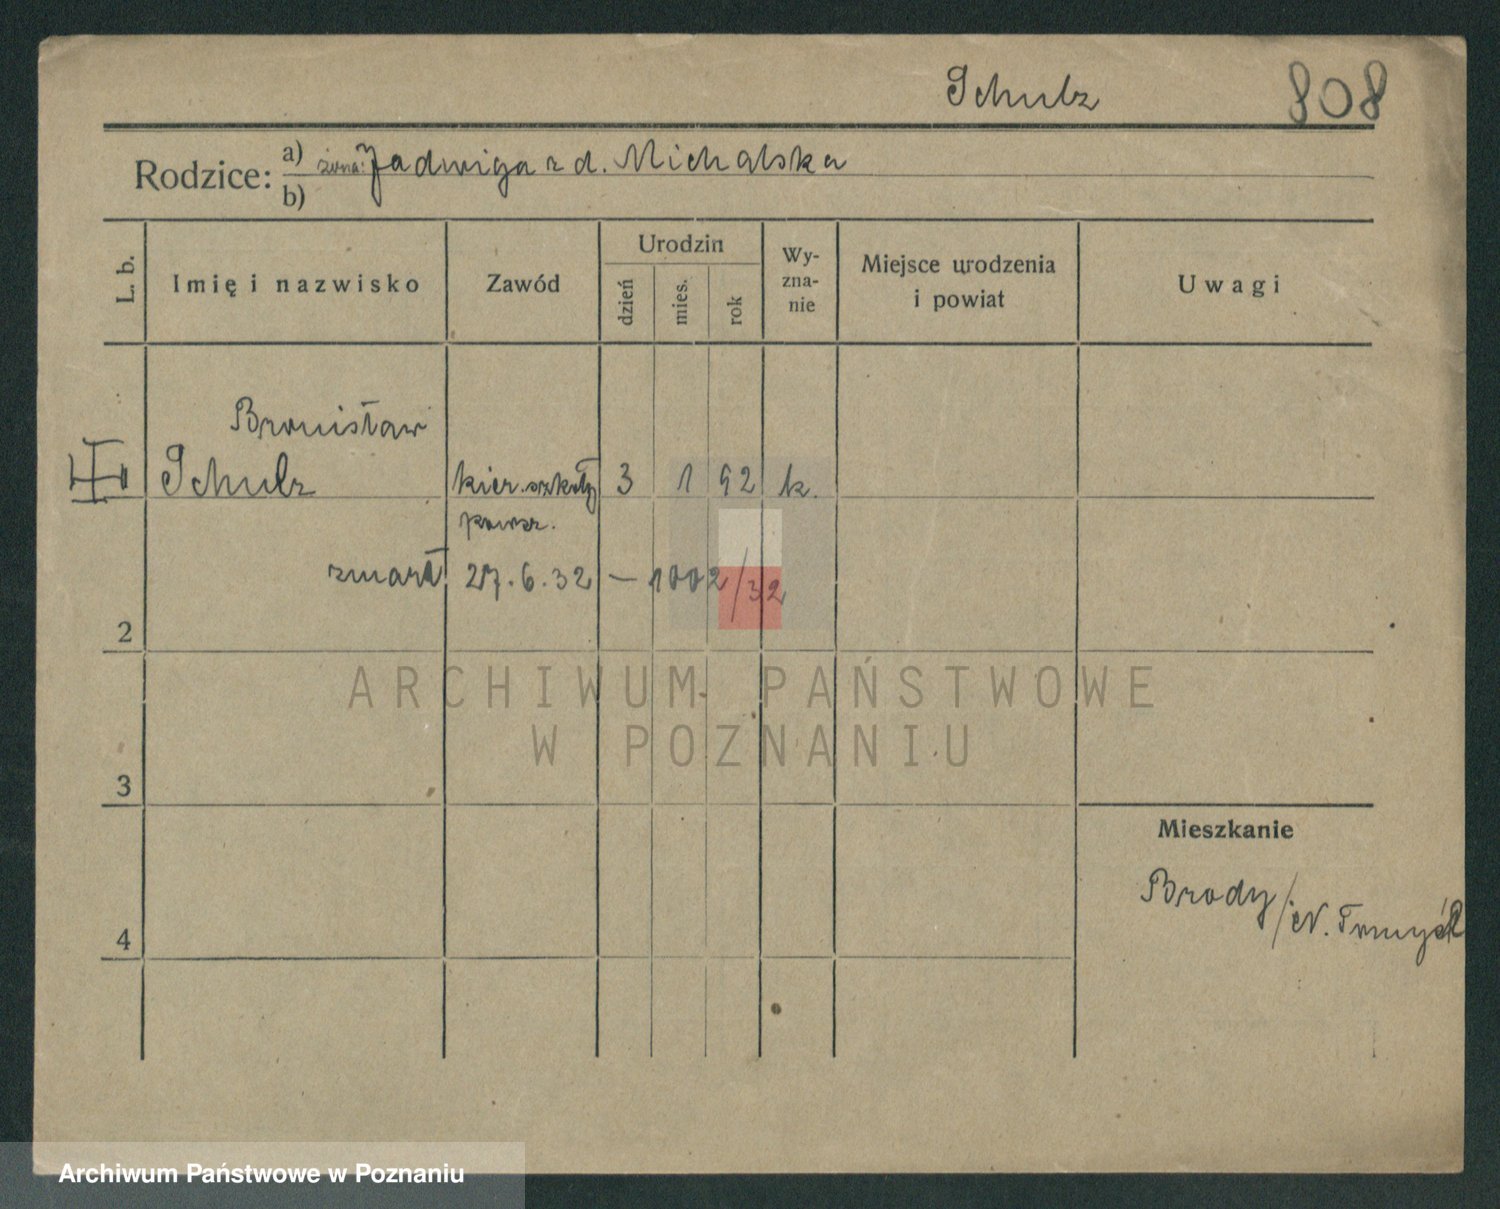 Schulz 808
Rodzice: a) żona: Jadwiga z d. Michalska
b)
L. b.
Imię i nazwisko
Zawód
Urodzin
dzień
mies.
rok
Wy-
zna-
nie
Miejsce urodzenia
i powiat
Uwagi
Bronisław
Schulz kier. szkoły 3 1 92 k.
powsz.
zmarł 27.6.32 — 1002/32
2
ARCHIWUM PAŃSTWOWE
W POZNANIU
3
Mieszkanie
Brody / N. Tomyśl
4
Archiwum Państwowe w Poznaniu